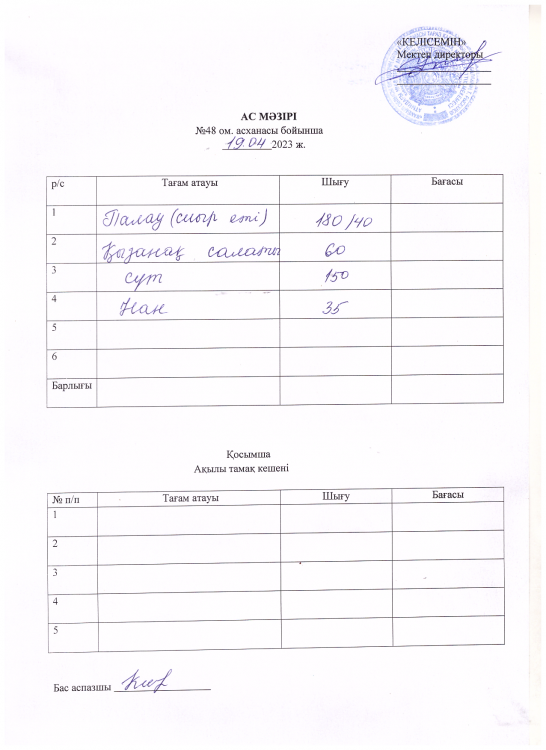 «КЕЛІСЕМІН»
Мектеп директоры
АС МӘЗІРІ
№48 ом. асханасы бойынша
19.04 2023 ж.
р/с Тағам атауы Шығу Бағасы
1 Палау (сиыр еті) 180/40
2 Қызанақ салаты 60
3 сүт 150
4 Нан 35
5
6
Барлығы
Қосымша
Ақылы тамақ кешені
№ п/п Тағам атауы Шығу Бағасы
1
2
3
4
5
Бас аспазшы